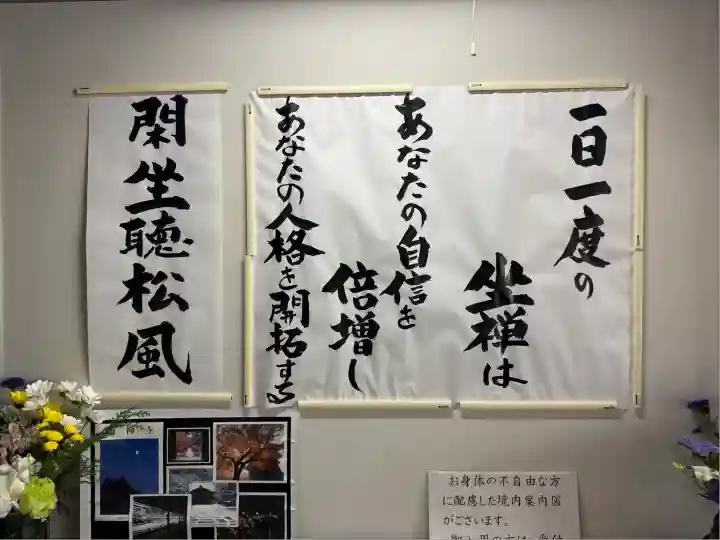 一日一度の
坐禅は
あなたの自信を
倍増し
あなたの人格を開拓する
閑坐聴松風
お身体の不自由な方
に配慮した境内案内図
がございます。